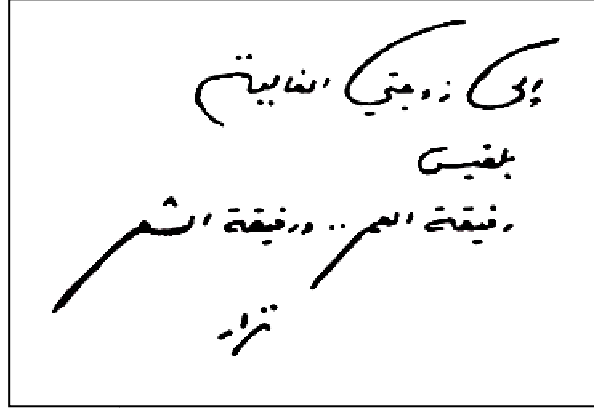 إلى زوجتي الغالية
بلقيس
رفيقة العمر .. ورفيقة الشعر
نزار